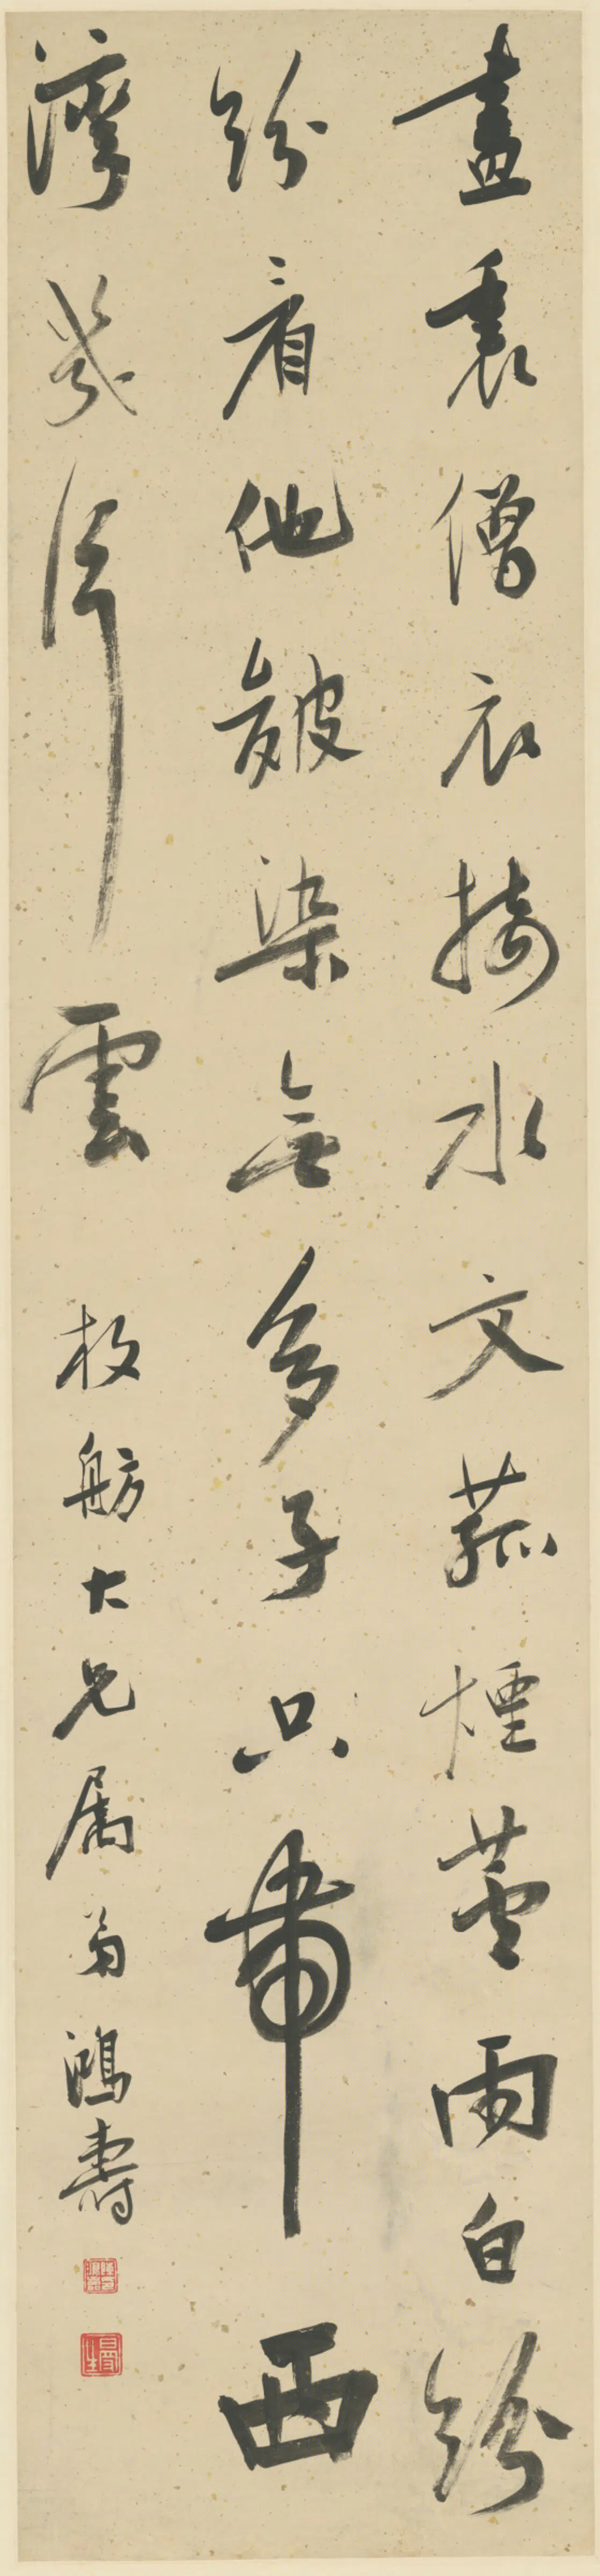 畫裏僧衣接水文菰煙蘆雨白紛
紛看他皴染無多子只帶西
灣幾片雲 枚舫大兄屬 弟鴻壽
曼生